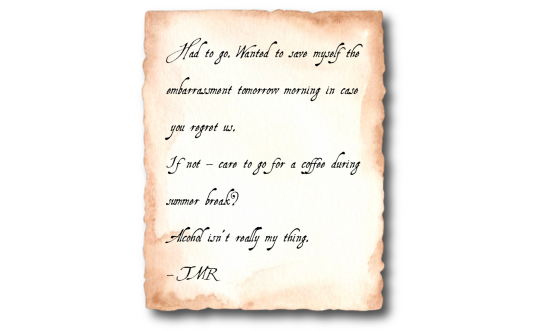 Had to go. Wanted to save myself the
embarrassment tomorrow morning in case
you regret us.
If not – care to go for a coffee during
summer break?
Alcohol isn't really my thing.
– TMR